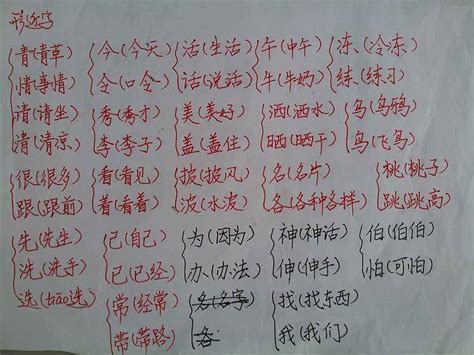 形近字
青(青草) 今(今天) 活(生活) 午(中午) 冻、(冷冻)
情(事情) 令(口令) 话(说话) 牛(牛奶) 练(练习)
请(请坐) 秀(秀才) 美(美好) 洒(洒水) 乌(乌鸦)
清(清凉) 李(李子) 盖(盖住) 晒(晒干) 鸟(飞鸟)
很(很多) 看(看见) 披(披风) 名(名片) 桃(桃子)
跟(跟前) 着(看着) 波(水波) 各(各种各样) 跳(跳高)
先(先生) 己(自己) 为(因为) 神(神话) 伯(伯伯)
洗(洗手) 已(已经) 办(办法) 伸(伸手) 怕(可怕)
选(tiāo选) 常(经常) 名(名字) 找(找东西)
带(带路) 各 我(我们)